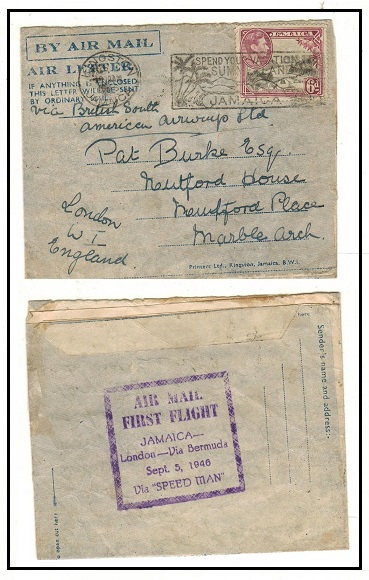 BY AIR MAIL
AIR LETTER
IF ANYTHING ENCLOSED
THIS LETTER WILL BE SENT
BY ORDINARY
KINGSTON
SPEND YOUR VACATION
JAMAICA
JAMAICA
6D
via British South
american airways Ltd
Pat Burke Esq.
Nutford House
Nutford Place
Marble Arch.
London
W 1
England.
Printers Ltd., Kingston, Jamaica, B.W.I.
here
Sender's name and address:-
AIR MAIL
FIRST FLIGHT
JAMAICA—
London—Via Bermuda
Sept. 5, 1946
Via "SPEED MAN"
o open cut here